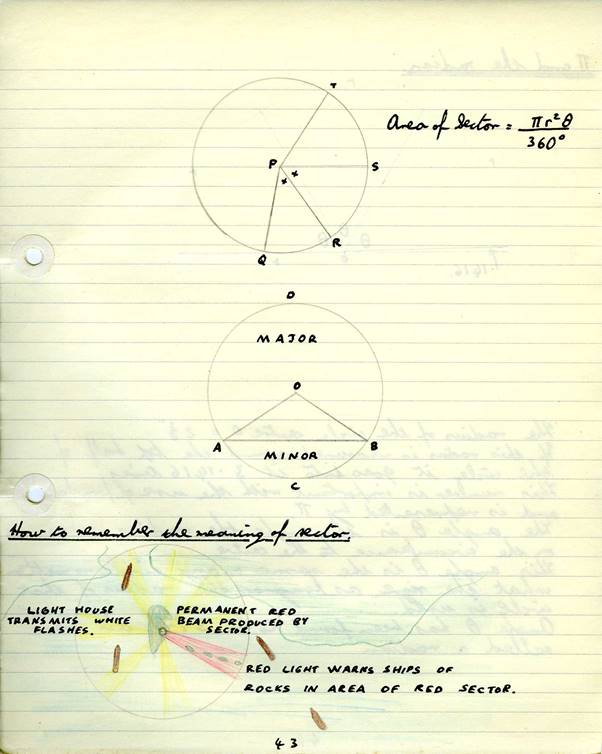 T
Area of Sector = πr²θ
360°
P
S
x x
R
Q
D
MAJOR
O
A
B
MINOR
C
How to remember the meaning of sector.
LIGHT HOUSE
TRANSMITS WHITE
FLASHES.
PERMANENT RED
BEAM PRODUCED BY
SECTOR.
RED LIGHT WARNS SHIPS OF
ROCKS IN AREA OF RED SECTOR.
43